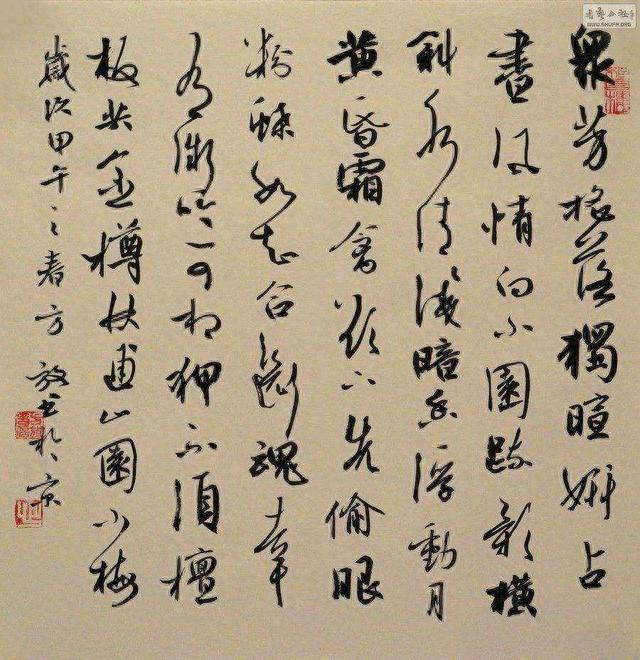 眾芳摇落獨暄妍占
盡风情向小園疏影橫
斜水清淺暗香浮動月
黄昏霜禽欲下先偷眼
粉蝶如知合斷魂幸
有微吟可相狎不須檀
板共金樽林逋山園小梅
歲次甲午之春方放书於京
WWW.SHUFA.ORG